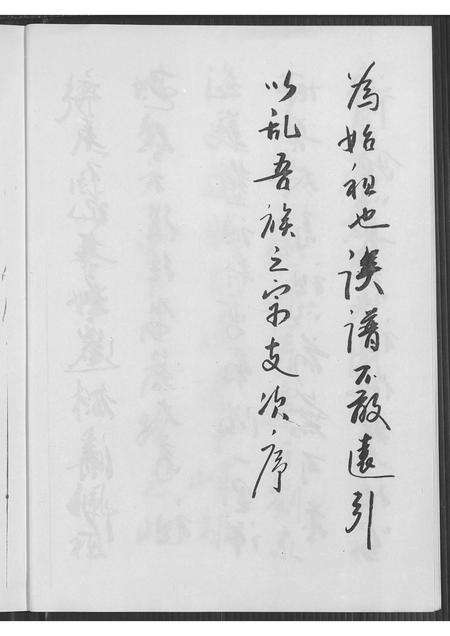 為始祖也謹譜不敢遠引
以乱吾族之宗支次序